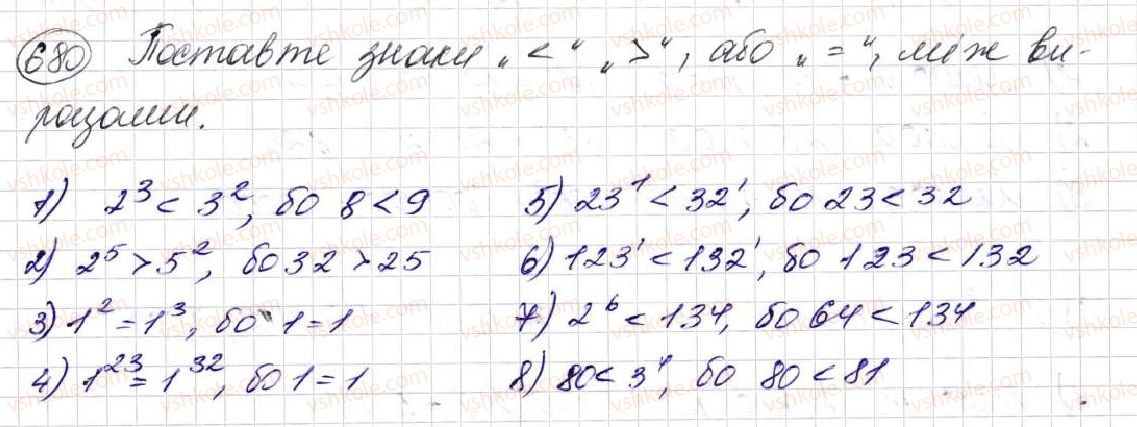 680 Поставте знаки „<“ „>“, або „=“, між ви-
разами.
1) 2³ < 3², бо 8 < 9
2) 2⁵ > 5², бо 32 > 25
3) 1² = 1³, бо 1 = 1
4) 1²³ = 1³², бо 1 = 1
5) 23¹ < 32¹, бо 23 < 32
6) 123¹ < 132¹, бо 123 < 132
7) 2⁶ < 134, бо 64 < 134
8) 80 < 3⁴, бо 80 < 81
vshkole.com